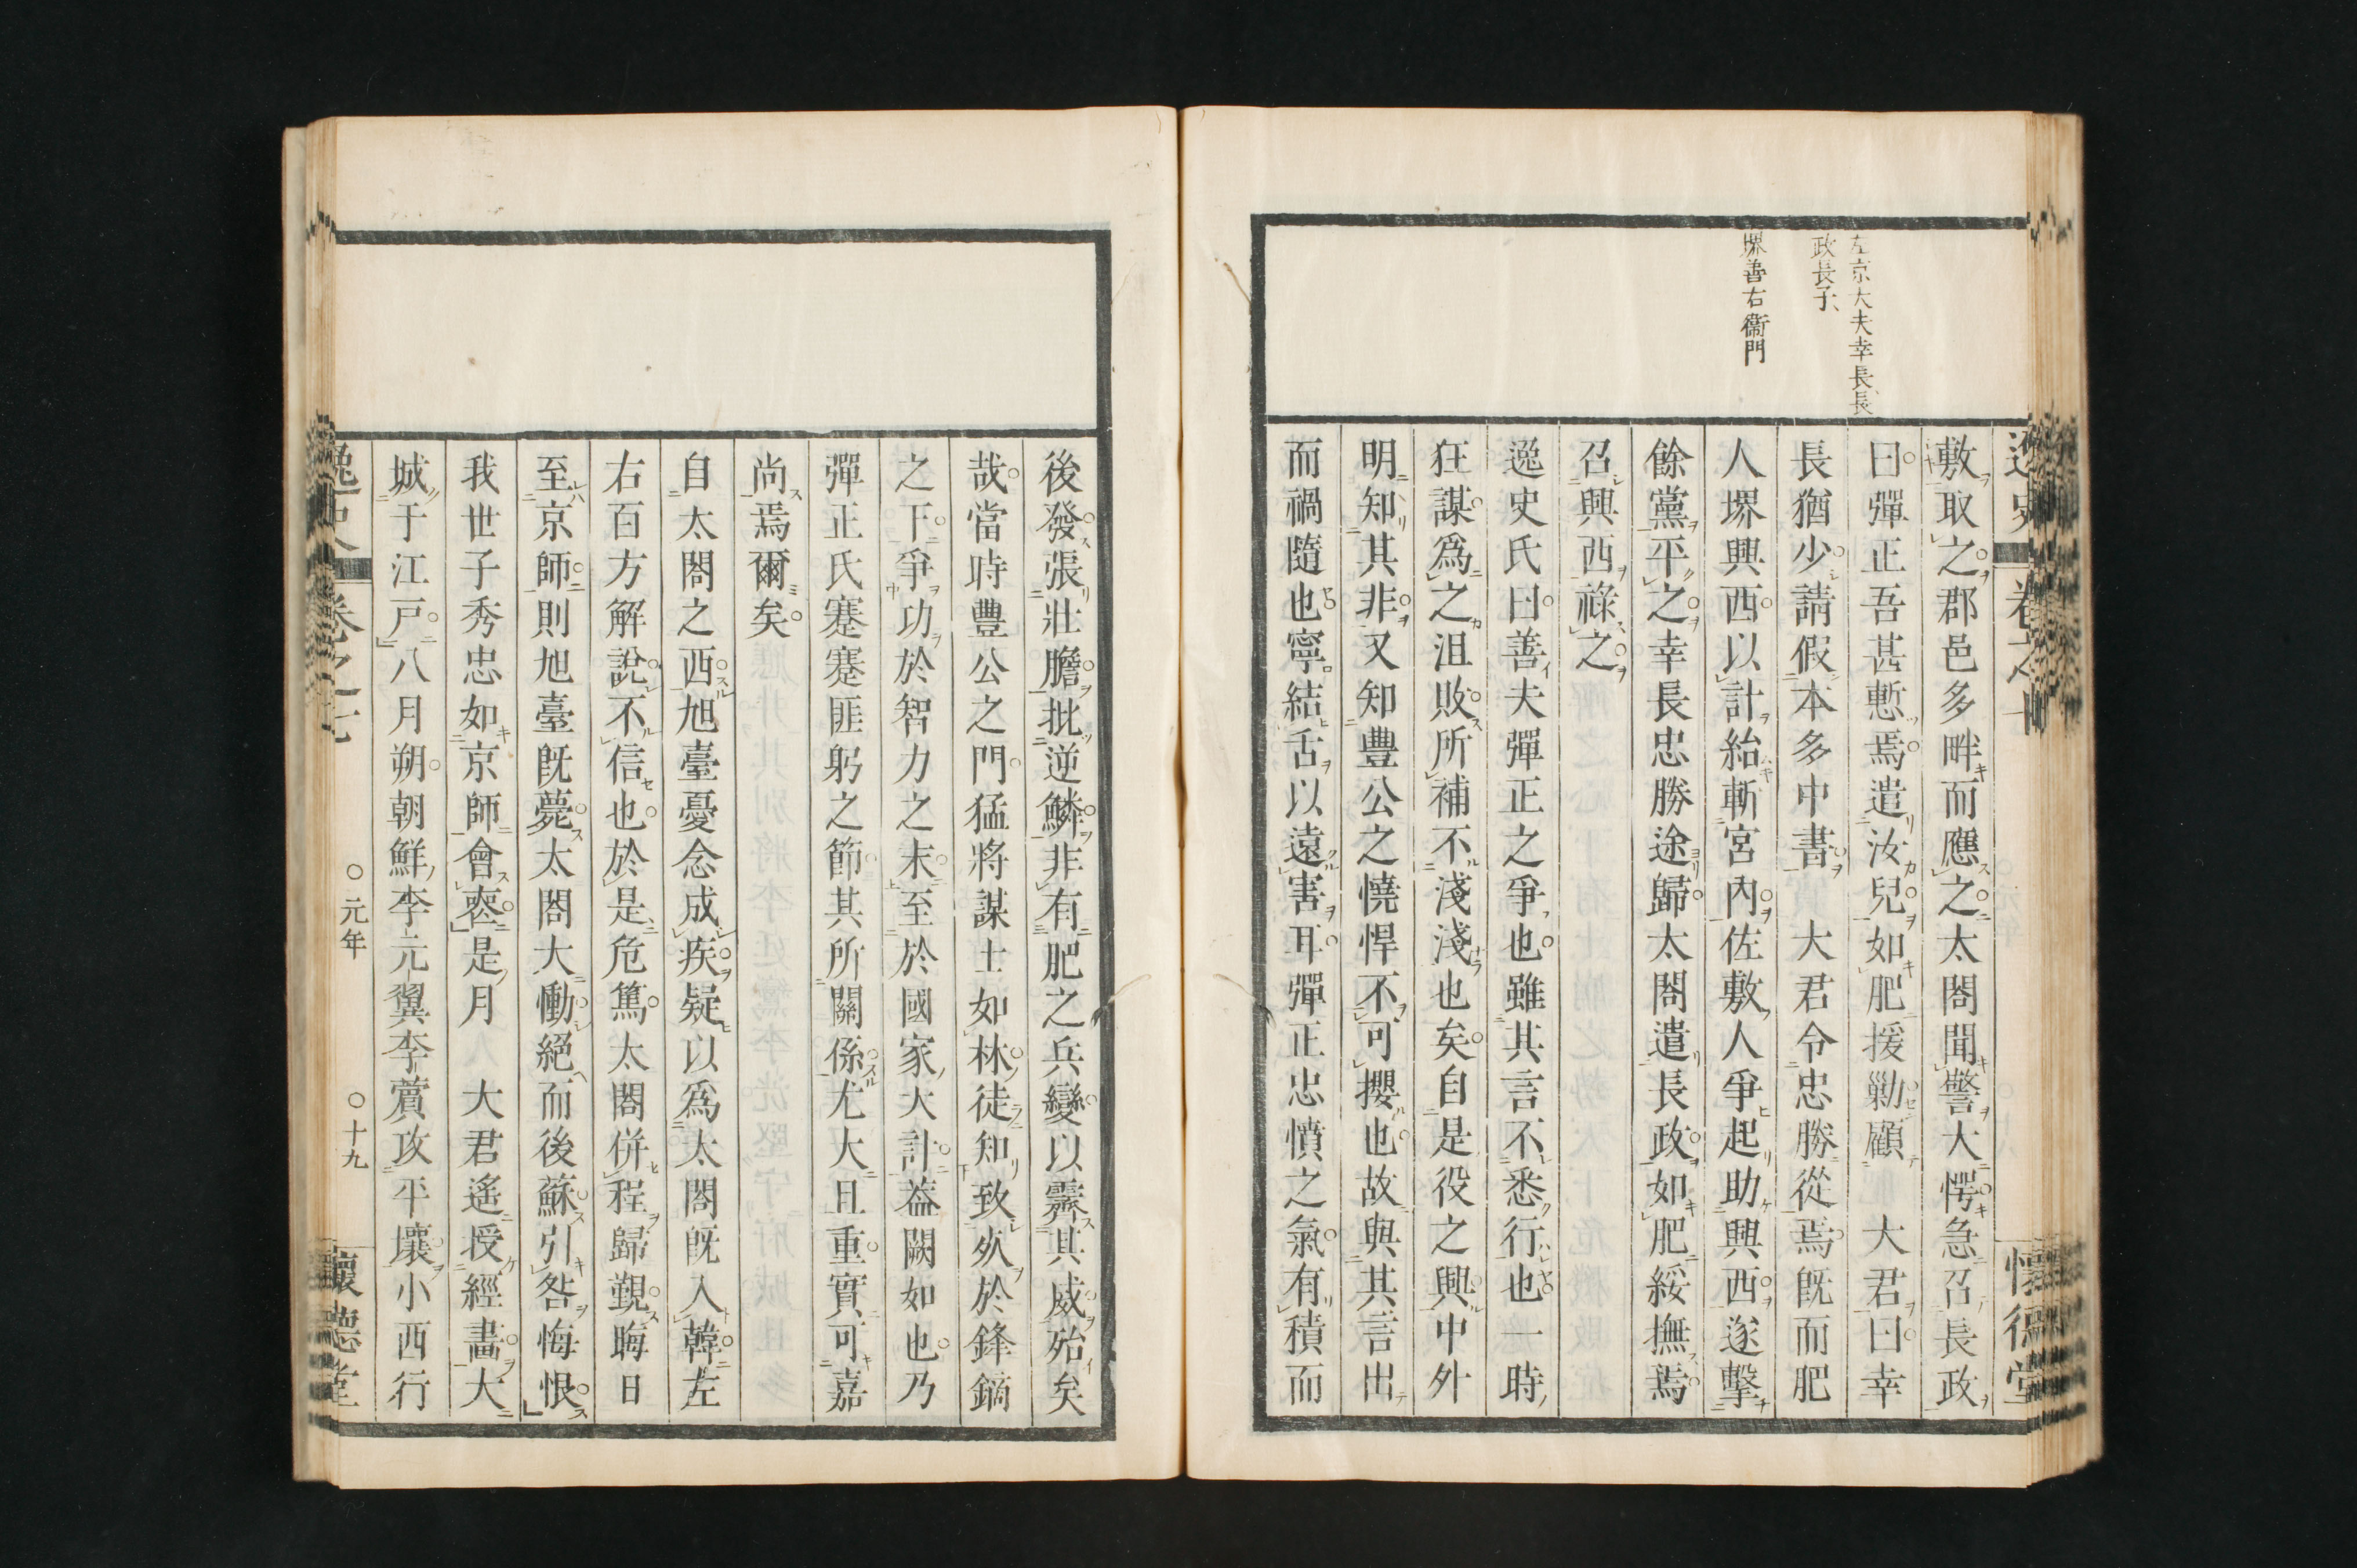 左京大夫幸長、長
政長子、
堺善右衞門
敷取之。郡邑多畔而應之。太閤聞警大愕。急召長政
曰。彈正吾甚慙焉。遣汝兒。如肥援勦。顧　大君曰。幸
長猶少。請假本多中書。　大君令忠勝從焉。既而肥
人堺興西。以計紿斬宮內。佐敷人爭起助興西。遂擊
餘黨平之。幸長忠勝途歸。太閤遣長政。如肥綏撫焉。
召興西祿之。
逸史氏曰。善夫彈正之爭也。雖其言不悉行也。一時
狂謀。爲之沮敗。所補不淺淺也矣。自是役之興。中外
明知其非。又知豐公之憢悍不可攖也。故與其言出
而禍隨也。寧結舌以遠害耳。彈正忠憤之氣。有積而
後發。張壯膽。批逆鱗。非有肥之兵變。以霽其威。殆矣
哉。當時豐公之門。猛將謀士如林。徒知致死於鋒鏑
之下。爭功於智力之末。至於國家大計。葢闕如也。乃
彈正氏蹇蹇匪躬之節。其所關係。尤大且重。實可嘉
尚焉爾矣。
自太閤之西。旭臺憂念成疾。疑以爲太閤既入韓。左
右百方解說。不信也。於是危篤。太閤併程歸覲。晦日
至京師。則旭臺既薨。太閤大慟絕。而後蘇。引咎悔恨。
我世子秀忠如京師會葬。是月　大君遙授經畫。大
城于江戸。八月朔。朝鮮李元翼李薲攻平壤。小西行
逸史　卷之七　○元年　○十九　懷德堂